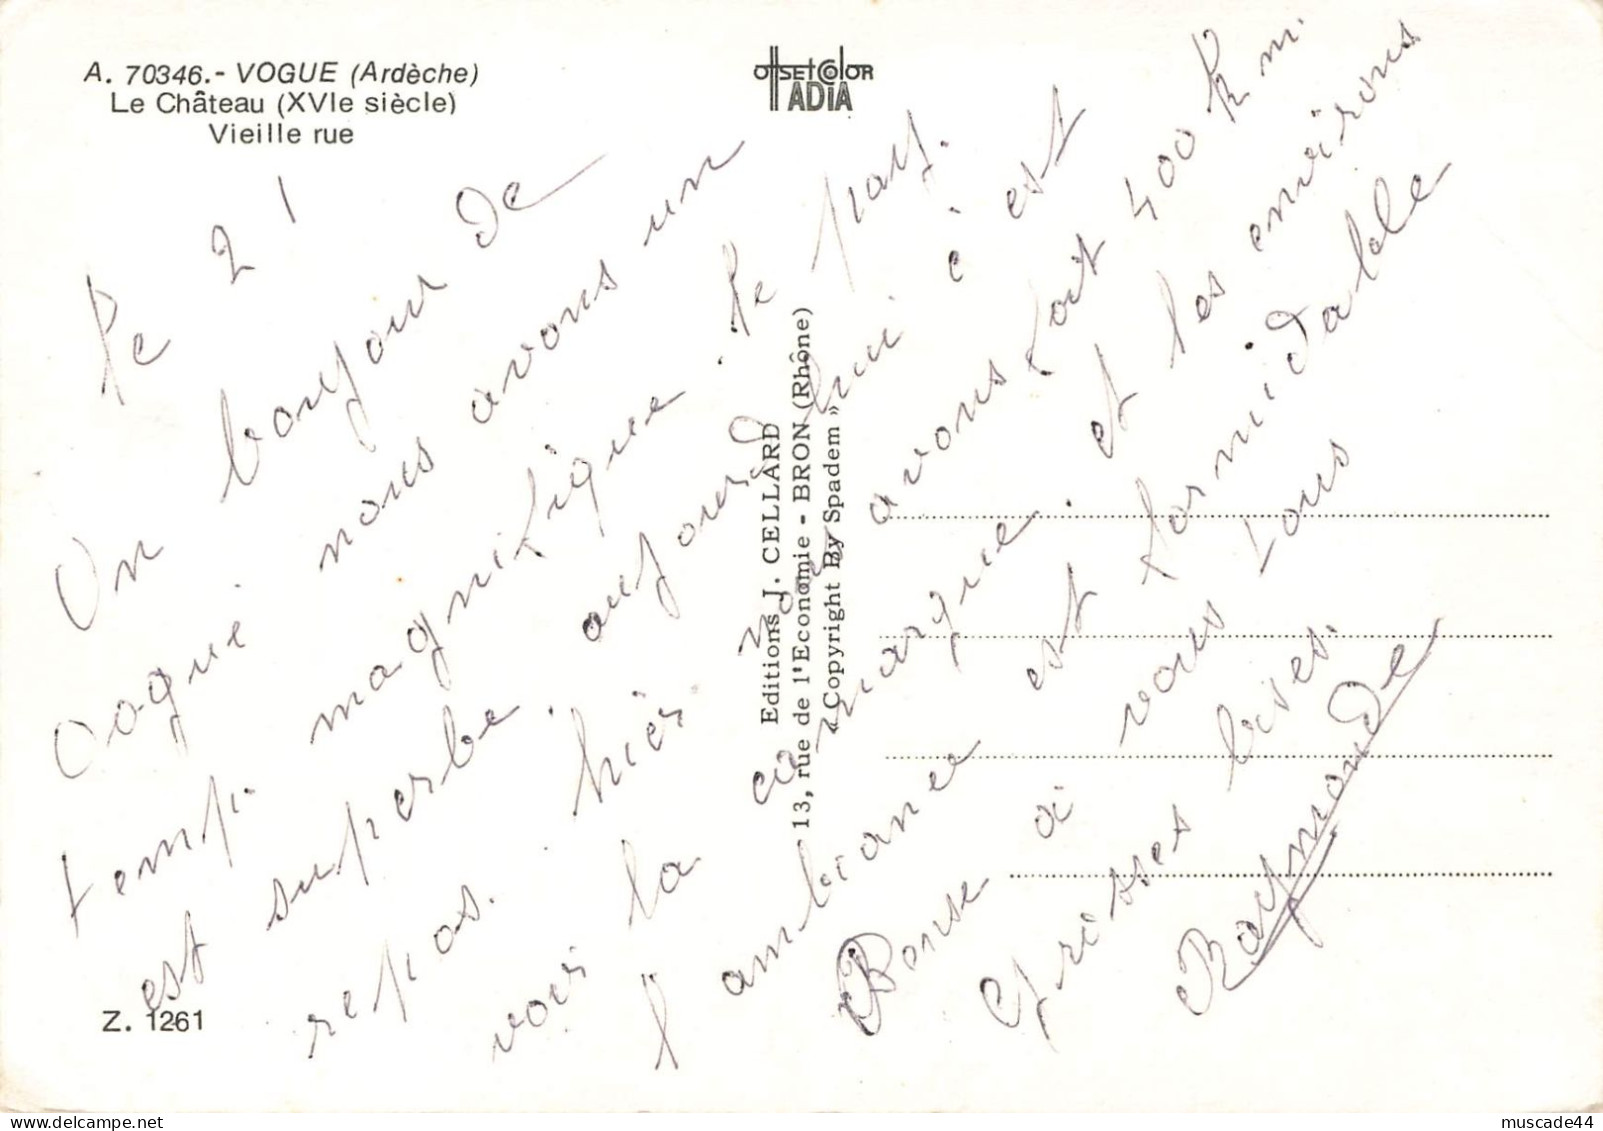 A. 70346.- VOGUE (Ardèche)
Le Château (XVIe siècle)
Vieille rue
offsetcolor
ADIA
Le 21
Un bonjour de
nous avons un
temps magnifique. le pays
est superbe. aujourd hui c est
repos. hièr nous avons fait 400 km
voir la ca marque. et les environs
l ambiance est formidable
Pense à vous tous
grosses bises.
Raymonde
Editions J. CELLARD
13, rue de l'Economie - BRON (Rhône)
« Copyright By Spadem »
Z. 1261
muscade44